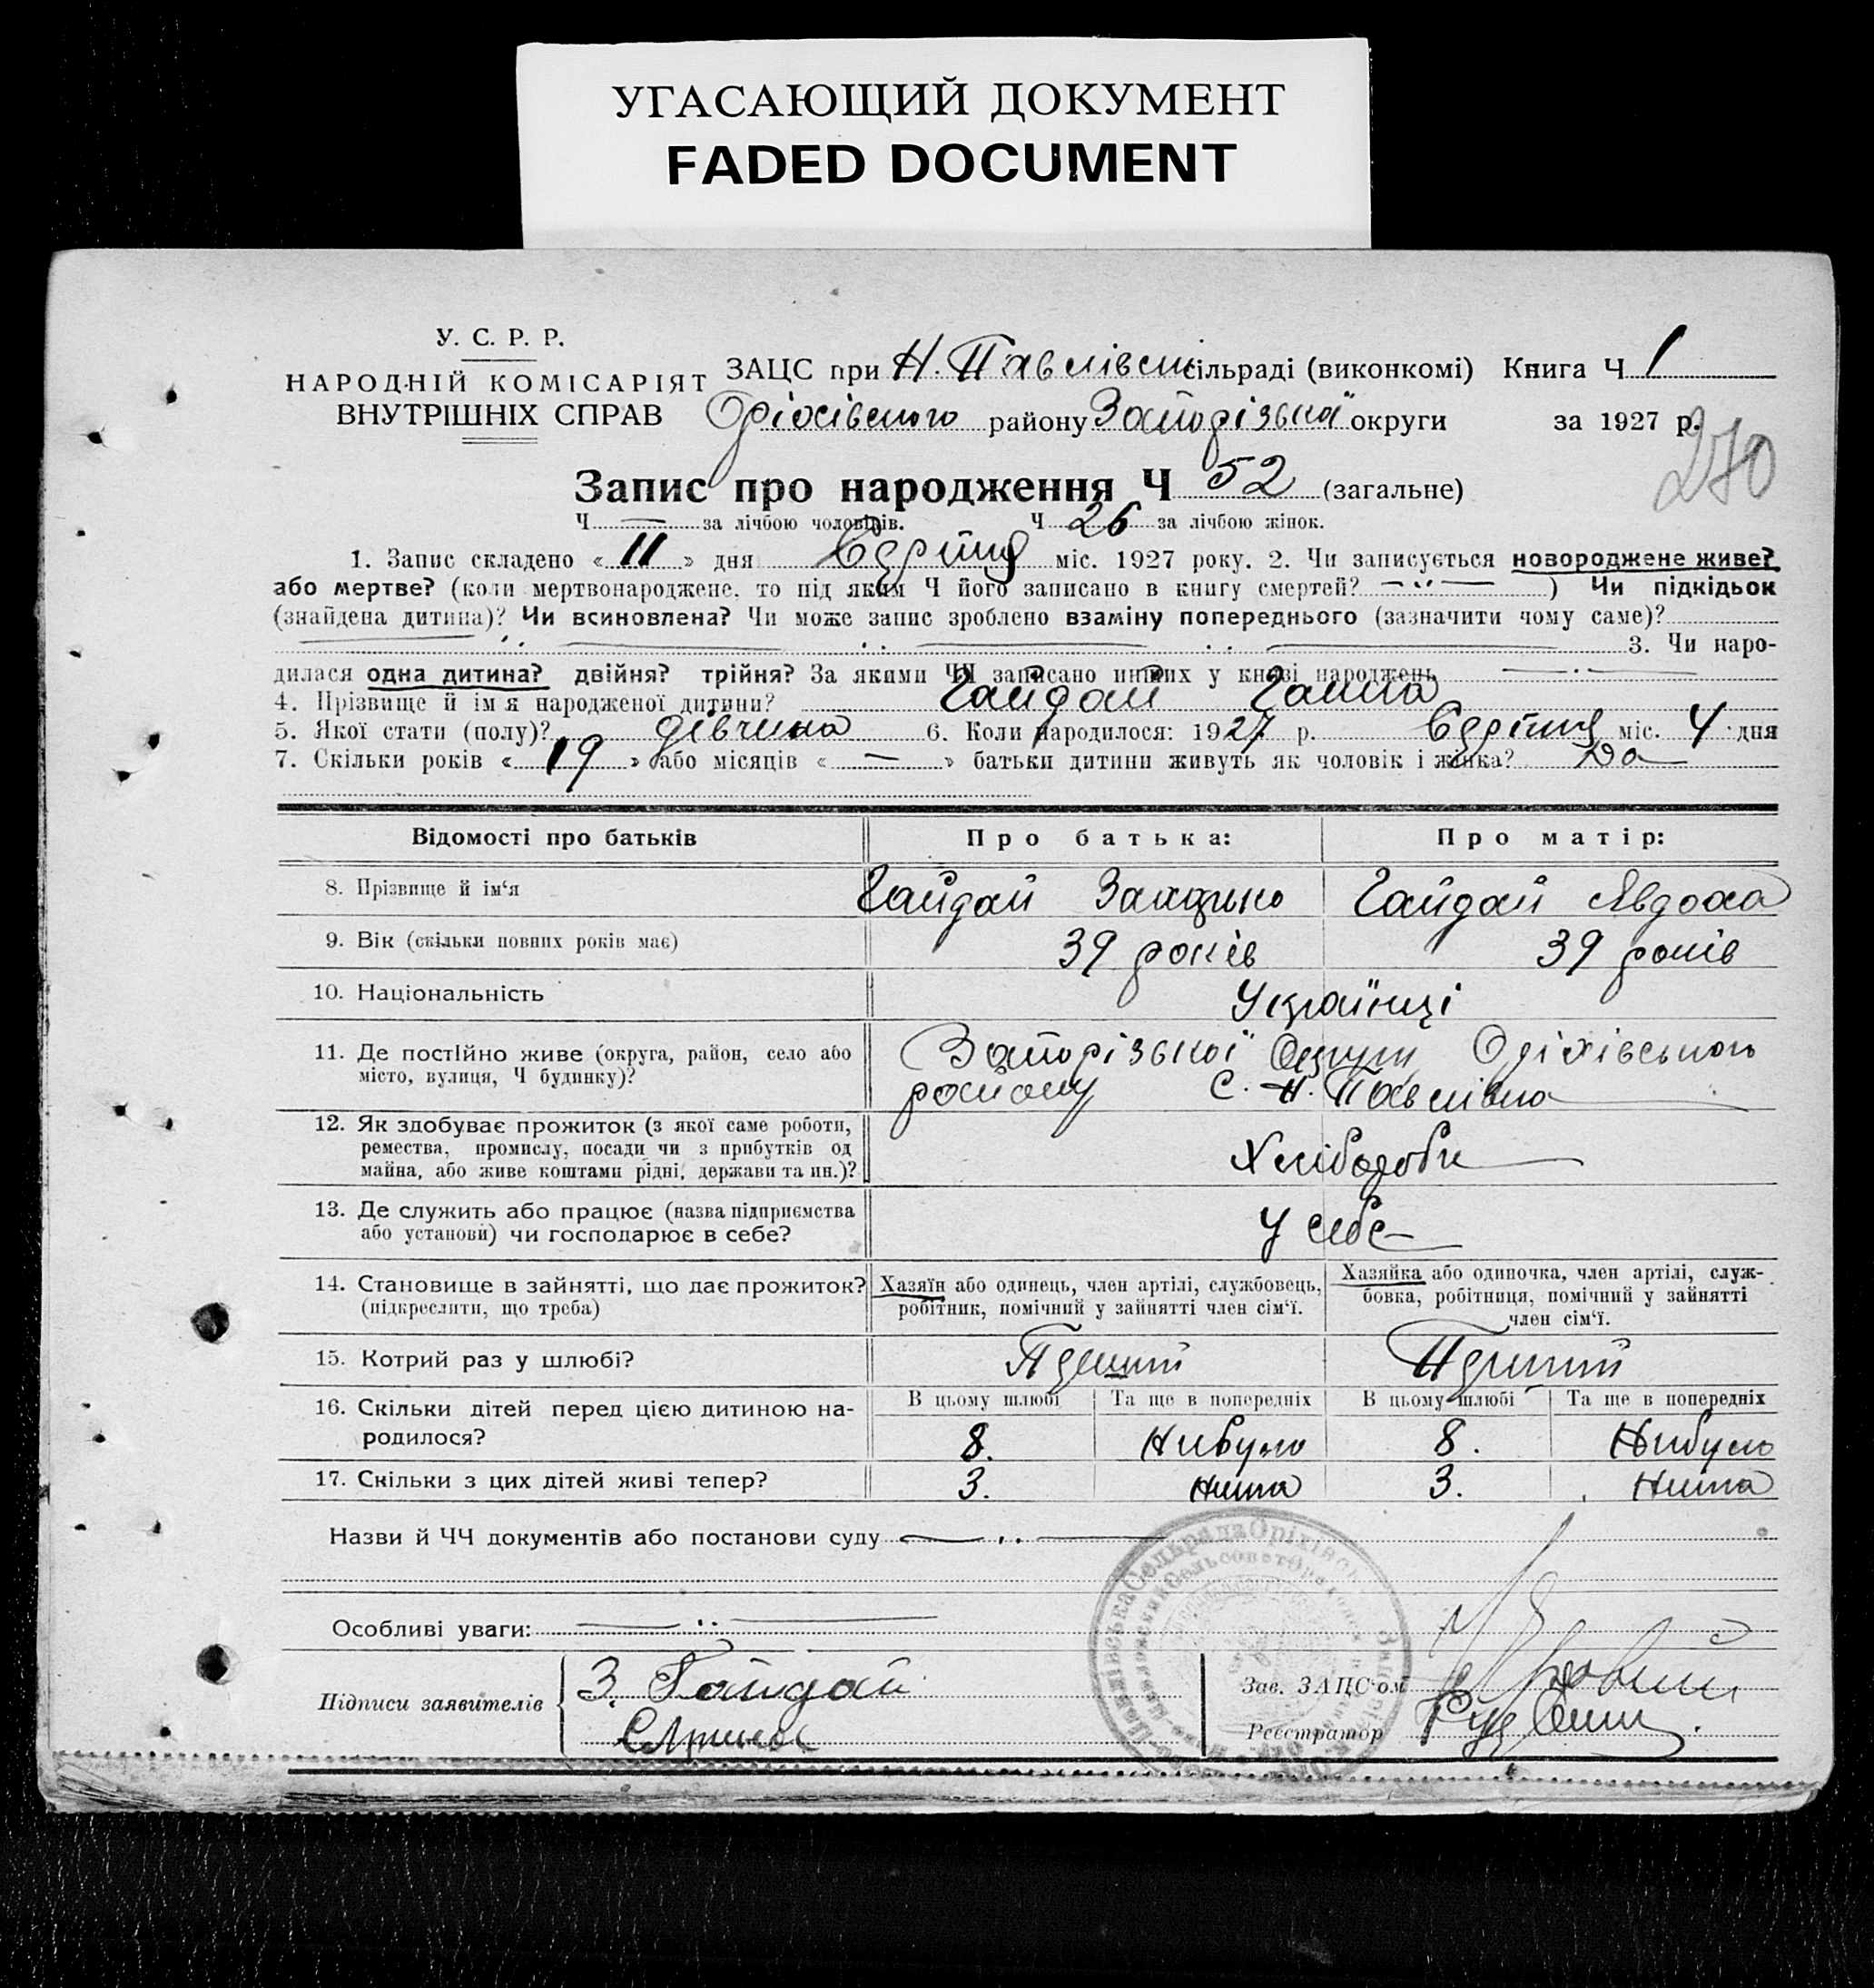 УГАСАЮЩИЙ ДОКУМЕНТ
FADED DOCUMENT
У. С. Р. Р.
НАРОДНІЙ КОМІСАРІЯТ
ВНУТРІШНІХ СПРАВ
ЗАЦС при Н. Павлівськ сільраді (виконкомі) Книга Ч 1
Оріхівского району Запорізької округи за 1927 р.
270
Запис про народження Ч 52 (загальне)
Ч — за лічбою чоловіків. Ч 26 за лічбою жінок.
1. Запис складено « 11 » дня Серпня міс. 1927 року. 2. Чи записується новороджене живе?
або мертве? (коли мертвонароджене, то під яким Ч його записано в книгу смертей? — ·· — ) Чи підкідьок
(знайдена дитина)? Чи всиновлена? Чи може запис зроблено взаміну попереднього (зазначити чому саме)?
3. Чи наро-
дилася одна дитина? двійня? трійня? За якими ЧЧ записано инших у книзі народжень — · —
4. Прізвище й ім'я народженої дитини? Гайдай Ганна
5. Якої стати (полу)? дівчина 6. Коли народилося: 1927 р. Серпня міс. 4 дня
7. Скільки років « 19 » або місяців « — » батьки дитини живуть як чоловік і жінка? Да
Відомості про батьків Про батька: Про матір:
8. Прізвище й ім'я Гайдай Захарко Гайдай Явдоха
9. Вік (скільки повних років має) 39 років 39 років
10. Національність Українці
11. Де постійно живе (округа, район, село або
місто, вулиця, Ч будинку)?
Запорізької Округи Оріхівського
району С. Н. Павлівка
12. Як здобуває прожиток (з якої саме роботи,
ремества, промислу, посади чи з прибутків од
майна, або живе коштами рідні, держави та ин.)?
Хлібороби
13. Де служить або працює (назва підприємства
або установи) чи господарює в себе?
У себе
14. Становище в зайнятті, що дає прожиток?
(підкреслити, що треба)
Хазяїн або одинець, член артілі, службовець,
робітник, помічний у зайнятті член сім'ї.
Хазяйка або одиночка, член артілі, служ-
бовка, робітниця, помічний у зайнятті
член сім'ї.
15. Котрий раз у шлюбі? Перший Перший
16. Скільки дітей перед цією дитиною на-
родилося?
В цьому шлюбі Та ще в попередніх В цьому шлюбі Та ще в попередніх
8. Нибуло 8. Нибуло
17. Скільки з цих дітей живі тепер? 3. Нима 3. Нима
Назви й ЧЧ документів або постанови суду — ·· —
Особливі уваги: — ·· —
Підписи заявителів
З. Гайдай
Зав. ЗАЦС'ом
Реєстратор